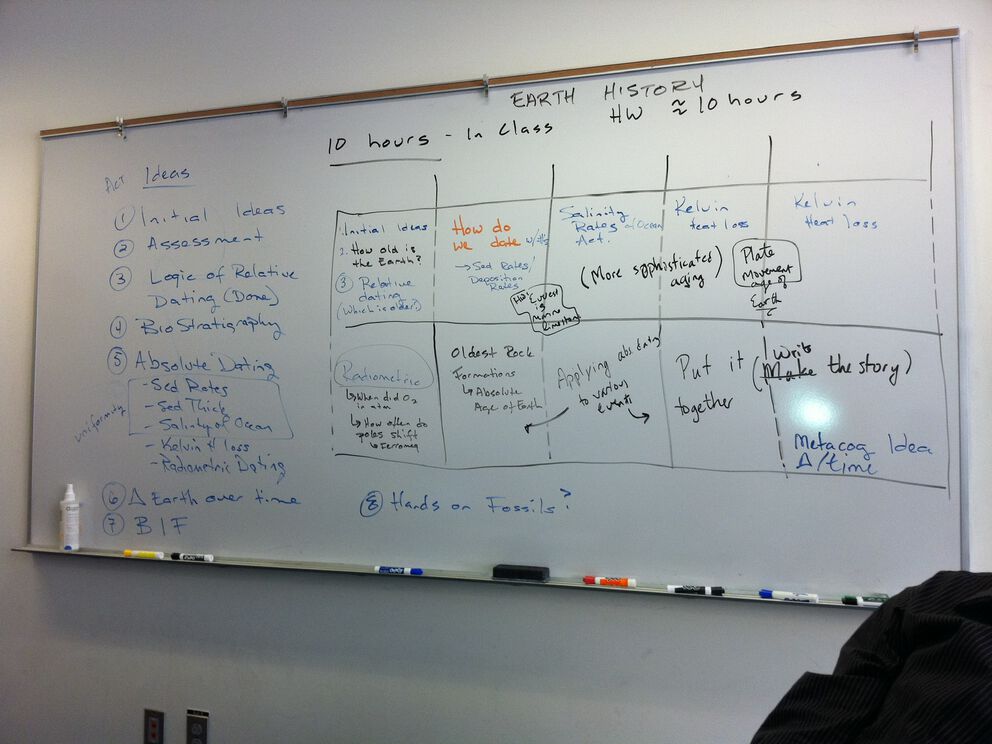 EARTH HISTORY
HW ≈ 10 hours
10 hours - In Class
Act Ideas
① Initial Ideas
② Assessment
③ Logic of Relative
Dating (Done)
④ BioStratigraphy
⑤ Absolute Dating
- Sed Rates
- Sed Thick
- Salinity of Ocean
- Kelvin H loss
- Radiometric Dating
uniformity
⑥ Δ Earth over time
⑦ BIF
⑧ Hands on Fossils?
1. Initial Ideas
2. How old is
the Earth?
③ Relative
dating
(Which is older?)
How do
we date
→ Sed Rates/
Deposition
Rates
HW:
is
Salinity
Rates of Ocean
Act.
(More sophisticated
aging)
Kelvin
Heat loss
Kelvin
Heat loss
Plate
movement
age of
Earth
Radiometric
↳ When did O2
in atm
↳ How often do
poles shift
↳ Ferromag
Oldest Rock
Formations
↳ Absolute
Age of Earth
Applying abs. dating
to various
events
Put it
together
(Write
Make the story)
Metacog Idea
Δ/time